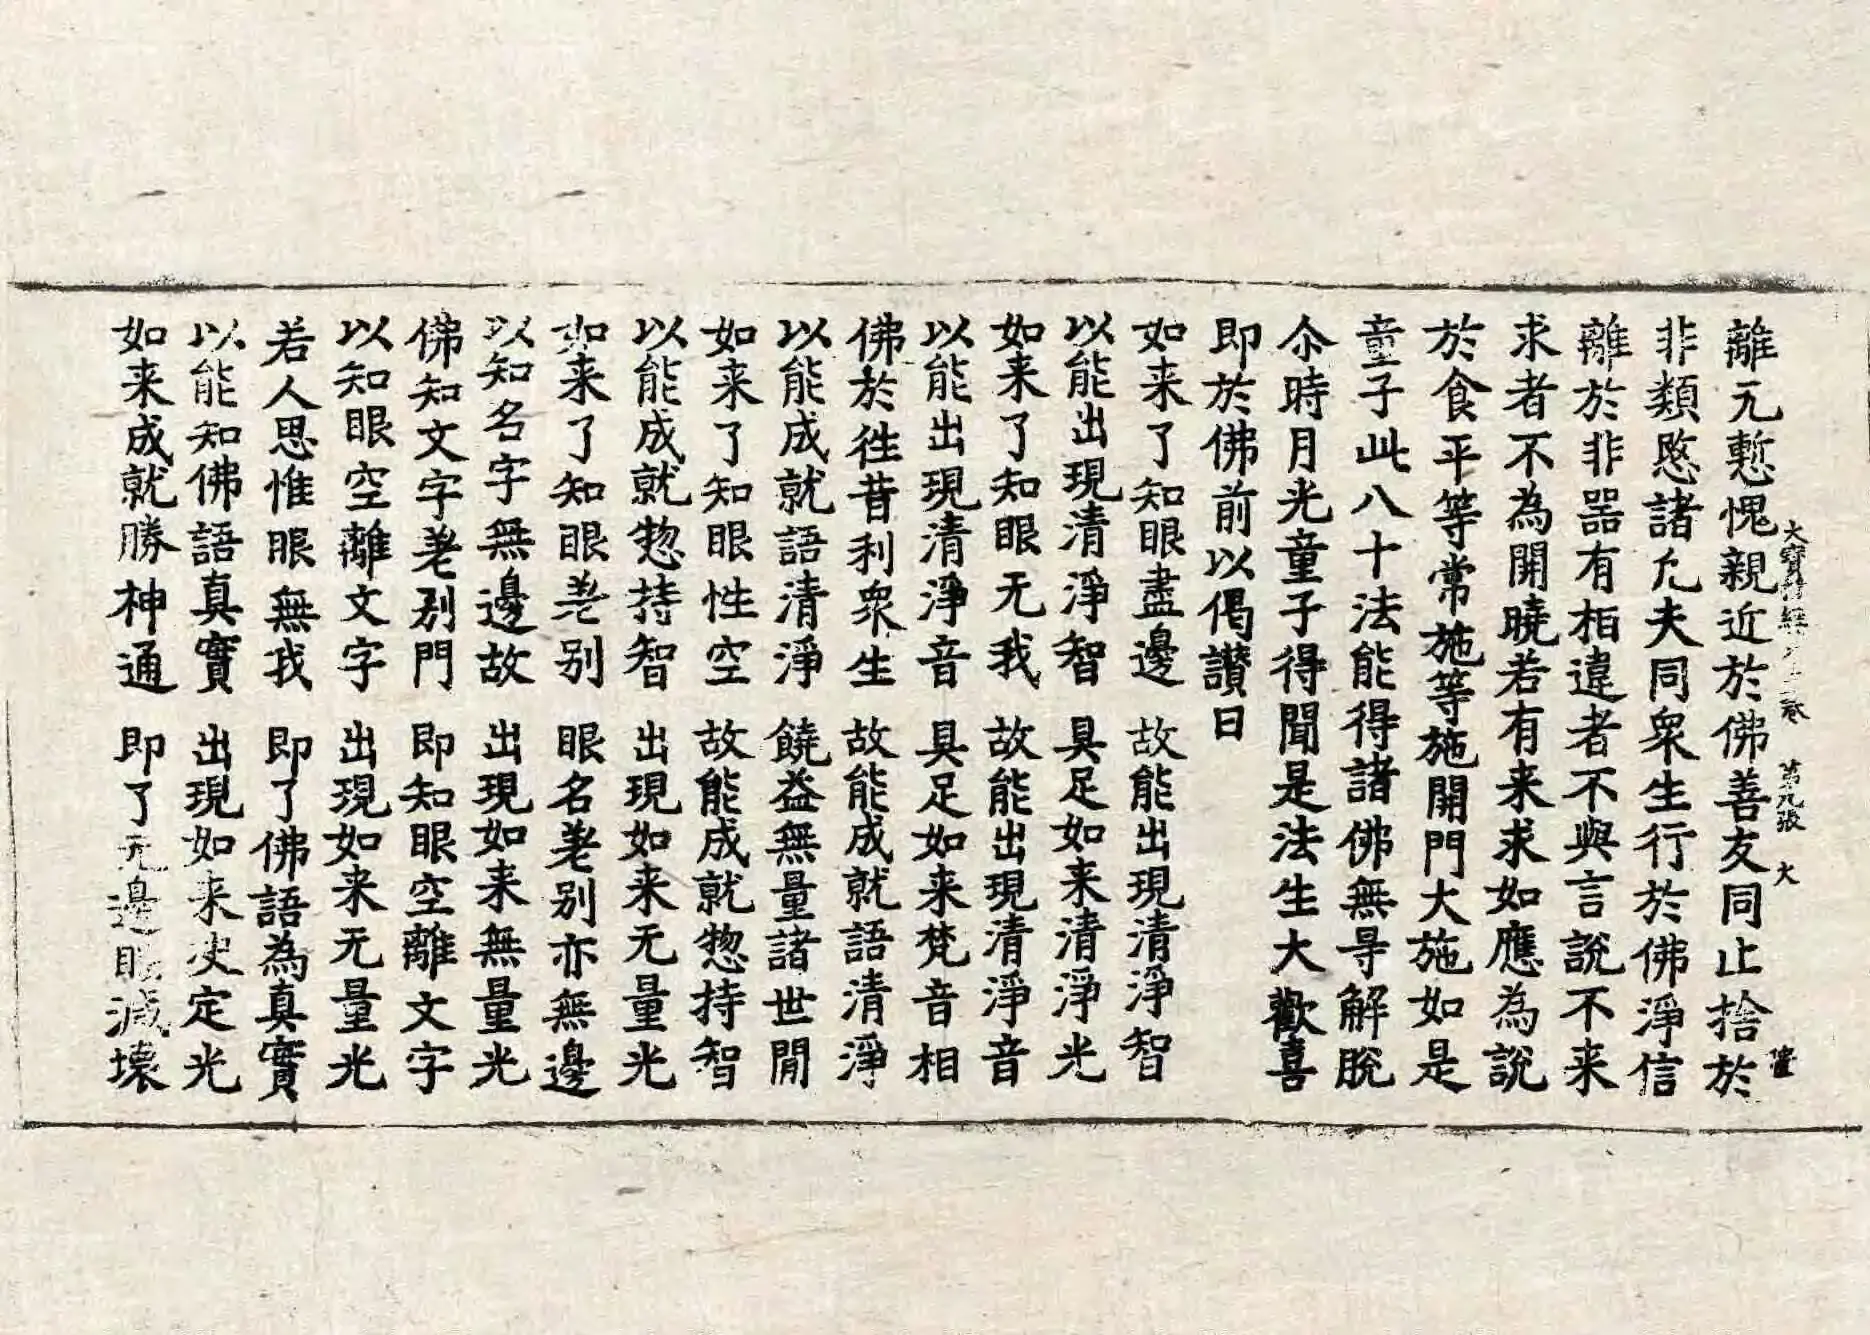 離无慙愧親近於佛善友同止捨於
非類愍諸凢夫同衆生行於佛淨信
離於非器有相違者不與言說不来
求者不為開曉若有来求如應為說
於食平等常施等施開門大施如是
童子此八十法能得諸佛無㝵解脫
尒時月光童子得聞是法生大歡喜
即於佛前以偈讃曰
如来了知眼盡邊 故能出現清淨智
以能出現清淨智 具足如来清淨光
如来了知眼无我 故能出現清淨音
以能出現清淨音 具足如来梵音相
佛於徃昔利衆生 故能成就語清淨
以能成就語清淨 饒益無量諸世間
如来了知眼性空 故能成就惣持智
以能成就惣持智 出現如来无量光
如来了知眼差別 眼名差别亦無邊
以知名字無邊故 出現如来無量光
佛知文字差别門 即知眼空離文字
以知眼空離文字 出現如来无量光
若人思惟眼無我 即了佛語為真實
以能知佛語真實 出現如来决定光
如来成就勝神通 即了无邊眼滅壞